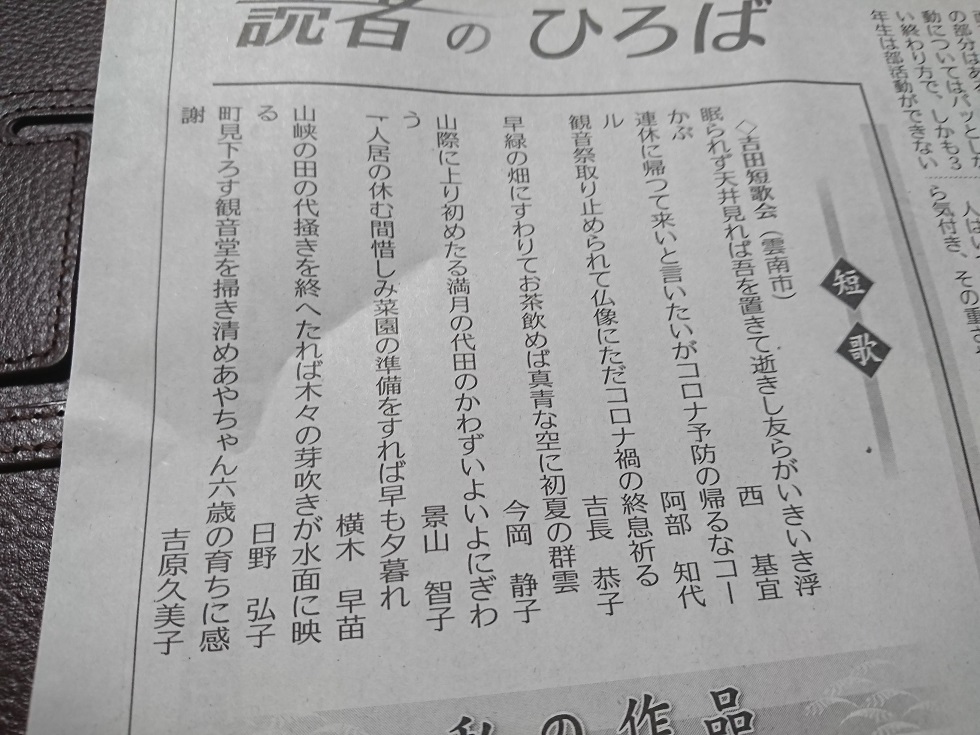 読者のひろば
短歌
◇吉田短歌会(雲南市)
眠られず天井見れば吾を置きて逝きし友らがいきいき浮
かぶ
西 基宜
連休に帰つて来いと言いたいがコロナ予防の帰るなコー
ル
阿部 知代
観音祭取り止められて仏像にただコロナ禍の終息祈る
吉長 恭子
早緑の畑にすわりてお茶飲めば真青な空に初夏の群雲
今岡 静子
山際に上り初めたる満月の代田のかわずいよいよにぎわ
う
景山 智子
一人居の休む間惜しみ菜園の準備をすれば早も夕暮れ
横木 早苗
山峡の田の代掻きを終へたれば木々の芽吹きが水面に映
る
日野 弘子
町見下ろす観音堂を掃き清めあやちゃん六歳の育ちに感
謝
吉原久美子
私の作品
の部分はある
動についてはパッとし
い終わり方で、しかも3
年生は部活動ができない
ら気付き、その